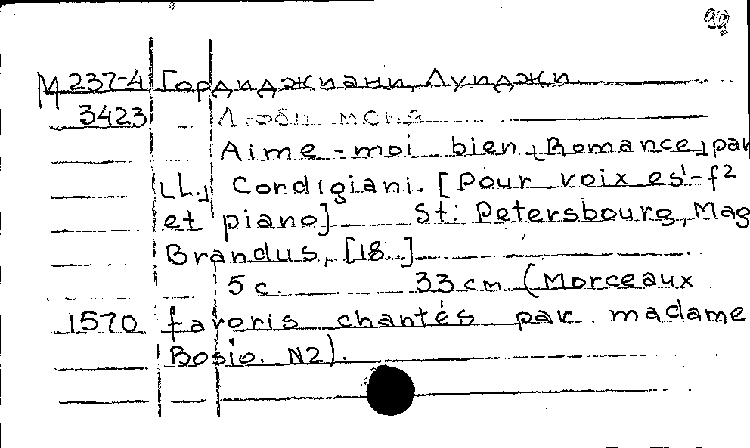 М 237-4 Гордиджиани, Луиджи
3423 Люби меня
Aime-moi bien [Romance] par
[L.] Cordigiani. [Pour voix es¹-f²
et piano] St. Petersbourg, Mag
Brandus, [18..]
5 с. 33 см (Morceaux
1570 favoris chantés par madame
Bosio. N2).